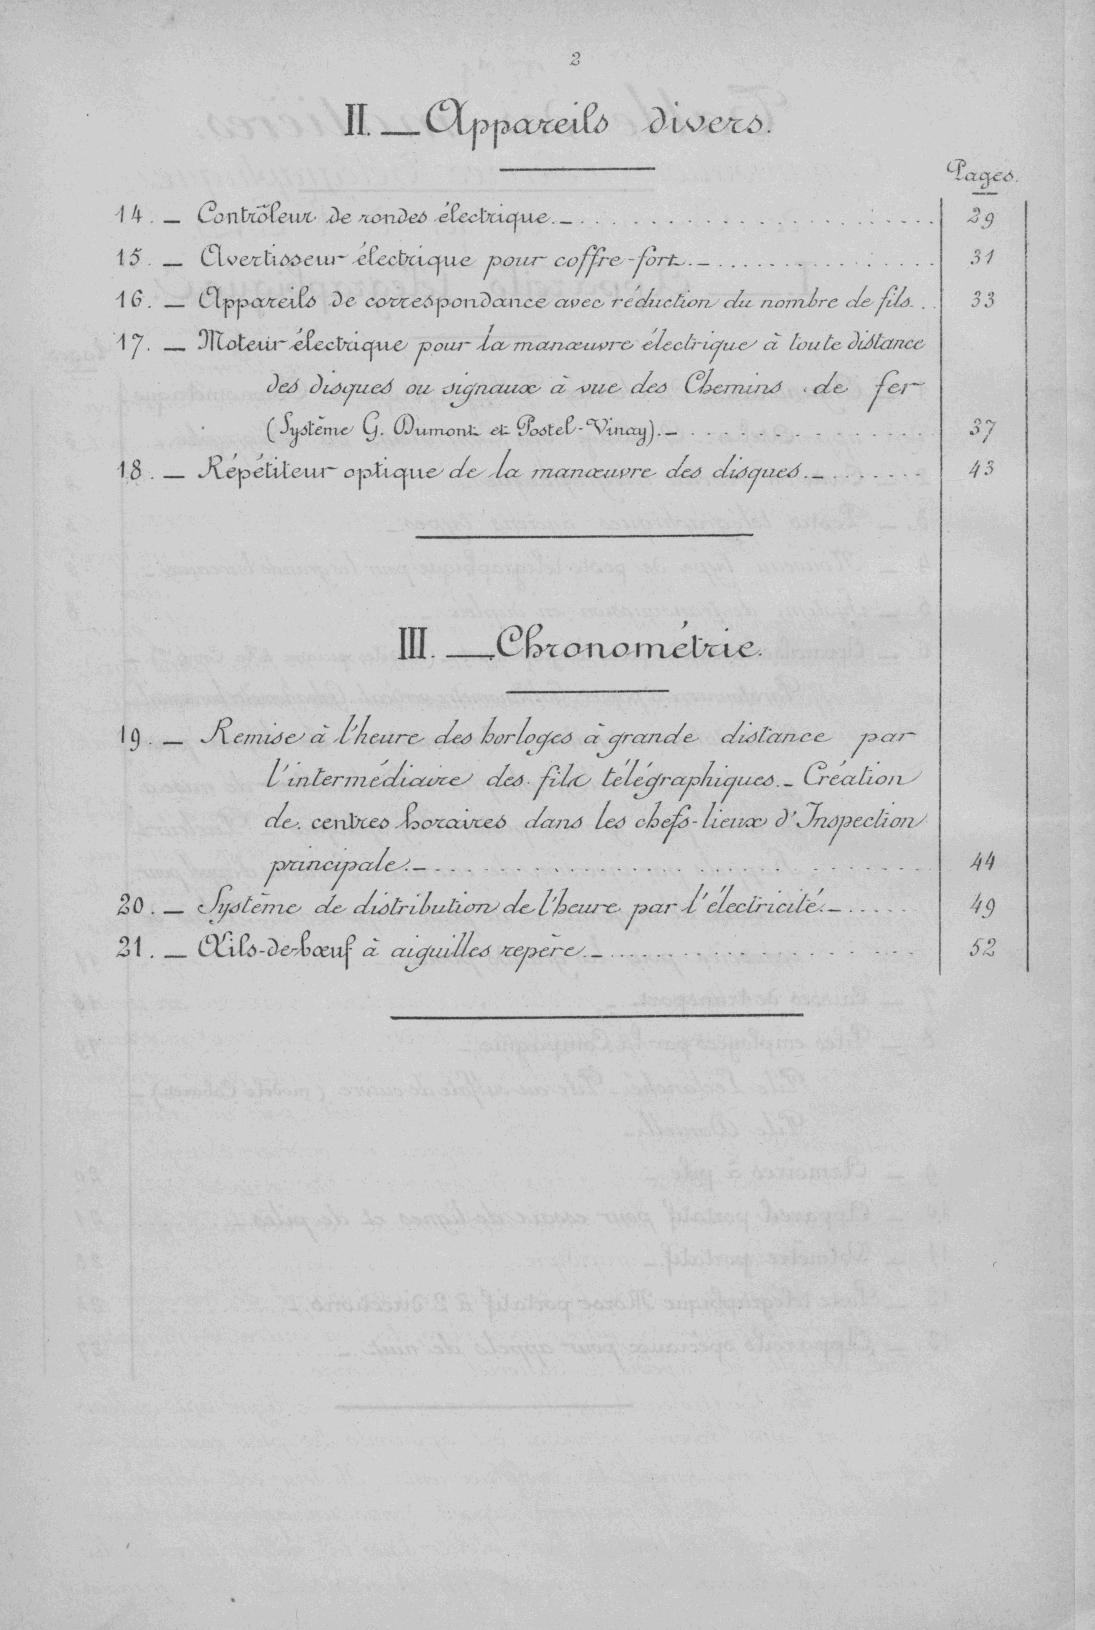 2
II. — Appareils divers.
Pages.
14. — Contrôleur de rondes électrique. — . . . . . . . . . . . . . . . . . 29
15. — Avertisseur électrique pour coffre-fort. — . . . . . . . . . . . 31
16. — Appareils de correspondance avec réduction du nombre de fils. . . 33
17. — Moteur électrique pour la manœuvre électrique à toute distance
des disques ou signaux à vue des Chemins de fer
(Système G. Dumont et Postel-Vinay). — . . . . . . . . . . . . . 37
18. — Répétiteur optique de la manœuvre des disques. — . . . . . . . 43
III. — Chronométrie.
19. — Remise à l'heure des horloges à grande distance par
l'intermédiaire des fils télégraphiques. — Création
de centres horaires dans les chefs-lieux d'Inspection
principale. — . . . . . . . . . . . . . . . . . . . . . . . . . . 44
20. — Système de distribution de l'heure par l'électricité. — . . . . . 49
21. — Œils-de-bœuf à aiguilles repère. — . . . . . . . . . . . . . . . 52